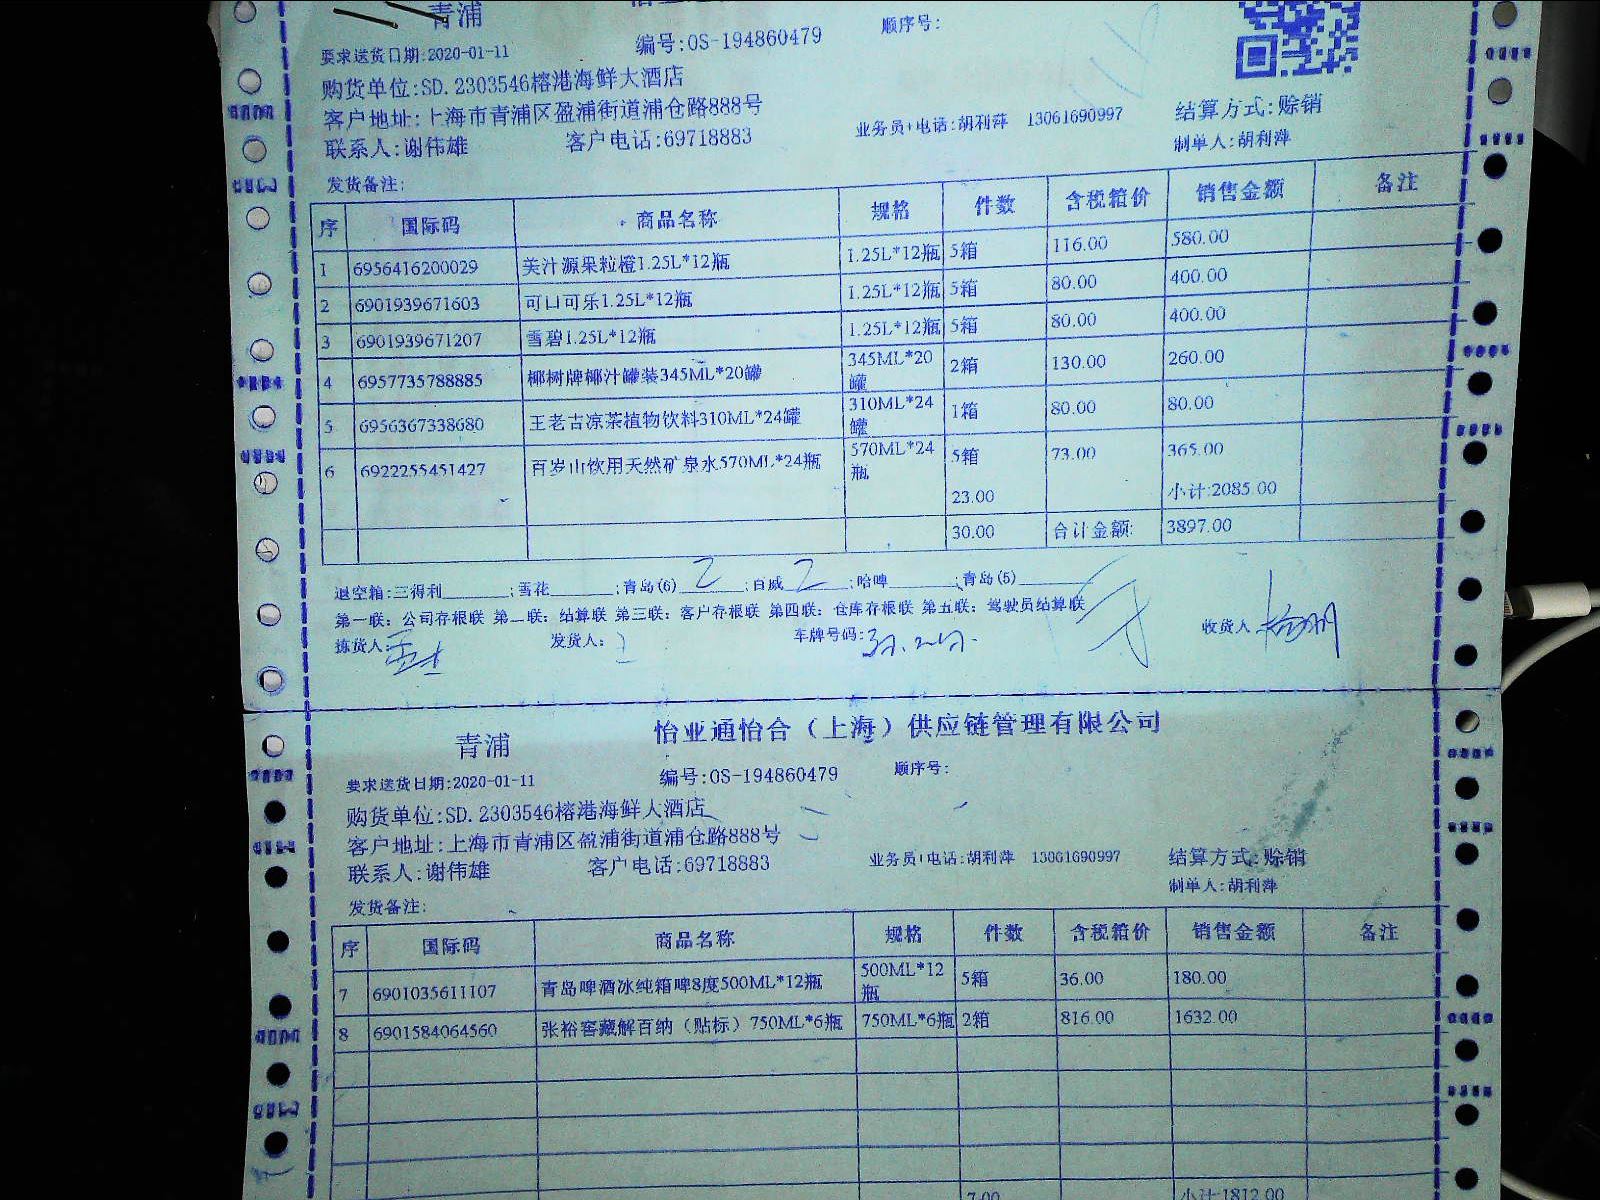 青浦
要求送货日期:2020-01-11 编号:OS-194860479 顺序号:
购货单位:SD.2303546榕港海鲜大酒店
客户地址:上海市青浦区盈浦街道浦仓路888号
联系人:谢伟雄 客户电话:69718883 业务员+电话:胡利萍 13061690997 结算方式:赊销
制单人:胡利萍
发货备注:
序 国际码 商品名称 规格 件数 含税箱价 销售金额 备注
1 6956416200029 美汁源果粒橙1.25L*12瓶 1.25L*12瓶 5箱 116.00 580.00
2 6901939671603 可口可乐1.25L*12瓶 1.25L*12瓶 5箱 80.00 400.00
3 6901939671207 雪碧1.25L*12瓶 1.25L*12瓶 5箱 80.00 400.00
4 6957735788885 椰树牌椰汁罐装345ML*20罐 345ML*20罐 2箱 130.00 260.00
5 6956367338680 王老吉凉茶植物饮料310ML*24罐 310ML*24罐 1箱 80.00 80.00
6 6922255451427 百岁山饮用天然矿泉水570ML*24瓶 570ML*24瓶 5箱 73.00 365.00
23.00 小计:2085.00
30.00 合计金额: 3897.00
退空箱:三得利______;雪花______;青岛(6) 2 ;百威 2 ;哈啤______;青岛(5)______
第一联: 公司存根联 第二联: 结算联 第三联: 客户存根联 第四联: 仓库存根联 第五联: 驾驶员结算联
拣货人: 发货人: 车牌号码: 收货人
怡业通怡合（上海）供应链管理有限公司
青浦
要求送货日期:2020-01-11 编号:OS-194860479 顺序号:
购货单位:SD.2303546榕港海鲜大酒店
客户地址:上海市青浦区盈浦街道浦仓路888号
联系人:谢伟雄 客户电话:69718883 业务员+电话:胡利萍 13061690997 结算方式:赊销
制单人:胡利萍
发货备注:
序 国际码 商品名称 规格 件数 含税箱价 销售金额 备注
7 6901035611107 青岛啤酒冰纯箱啤8度500ML*12瓶 500ML*12瓶 5箱 36.00 180.00
8 6901584064560 张裕窖藏解百纳（贴标）750ML*6瓶 750ML*6瓶 2箱 816.00 1632.00
7.00 小计:1812.00